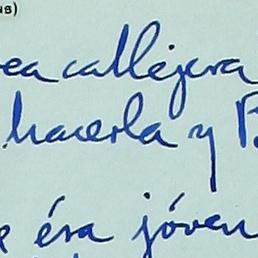 us)
callejera
hacerla y
ésa jóven